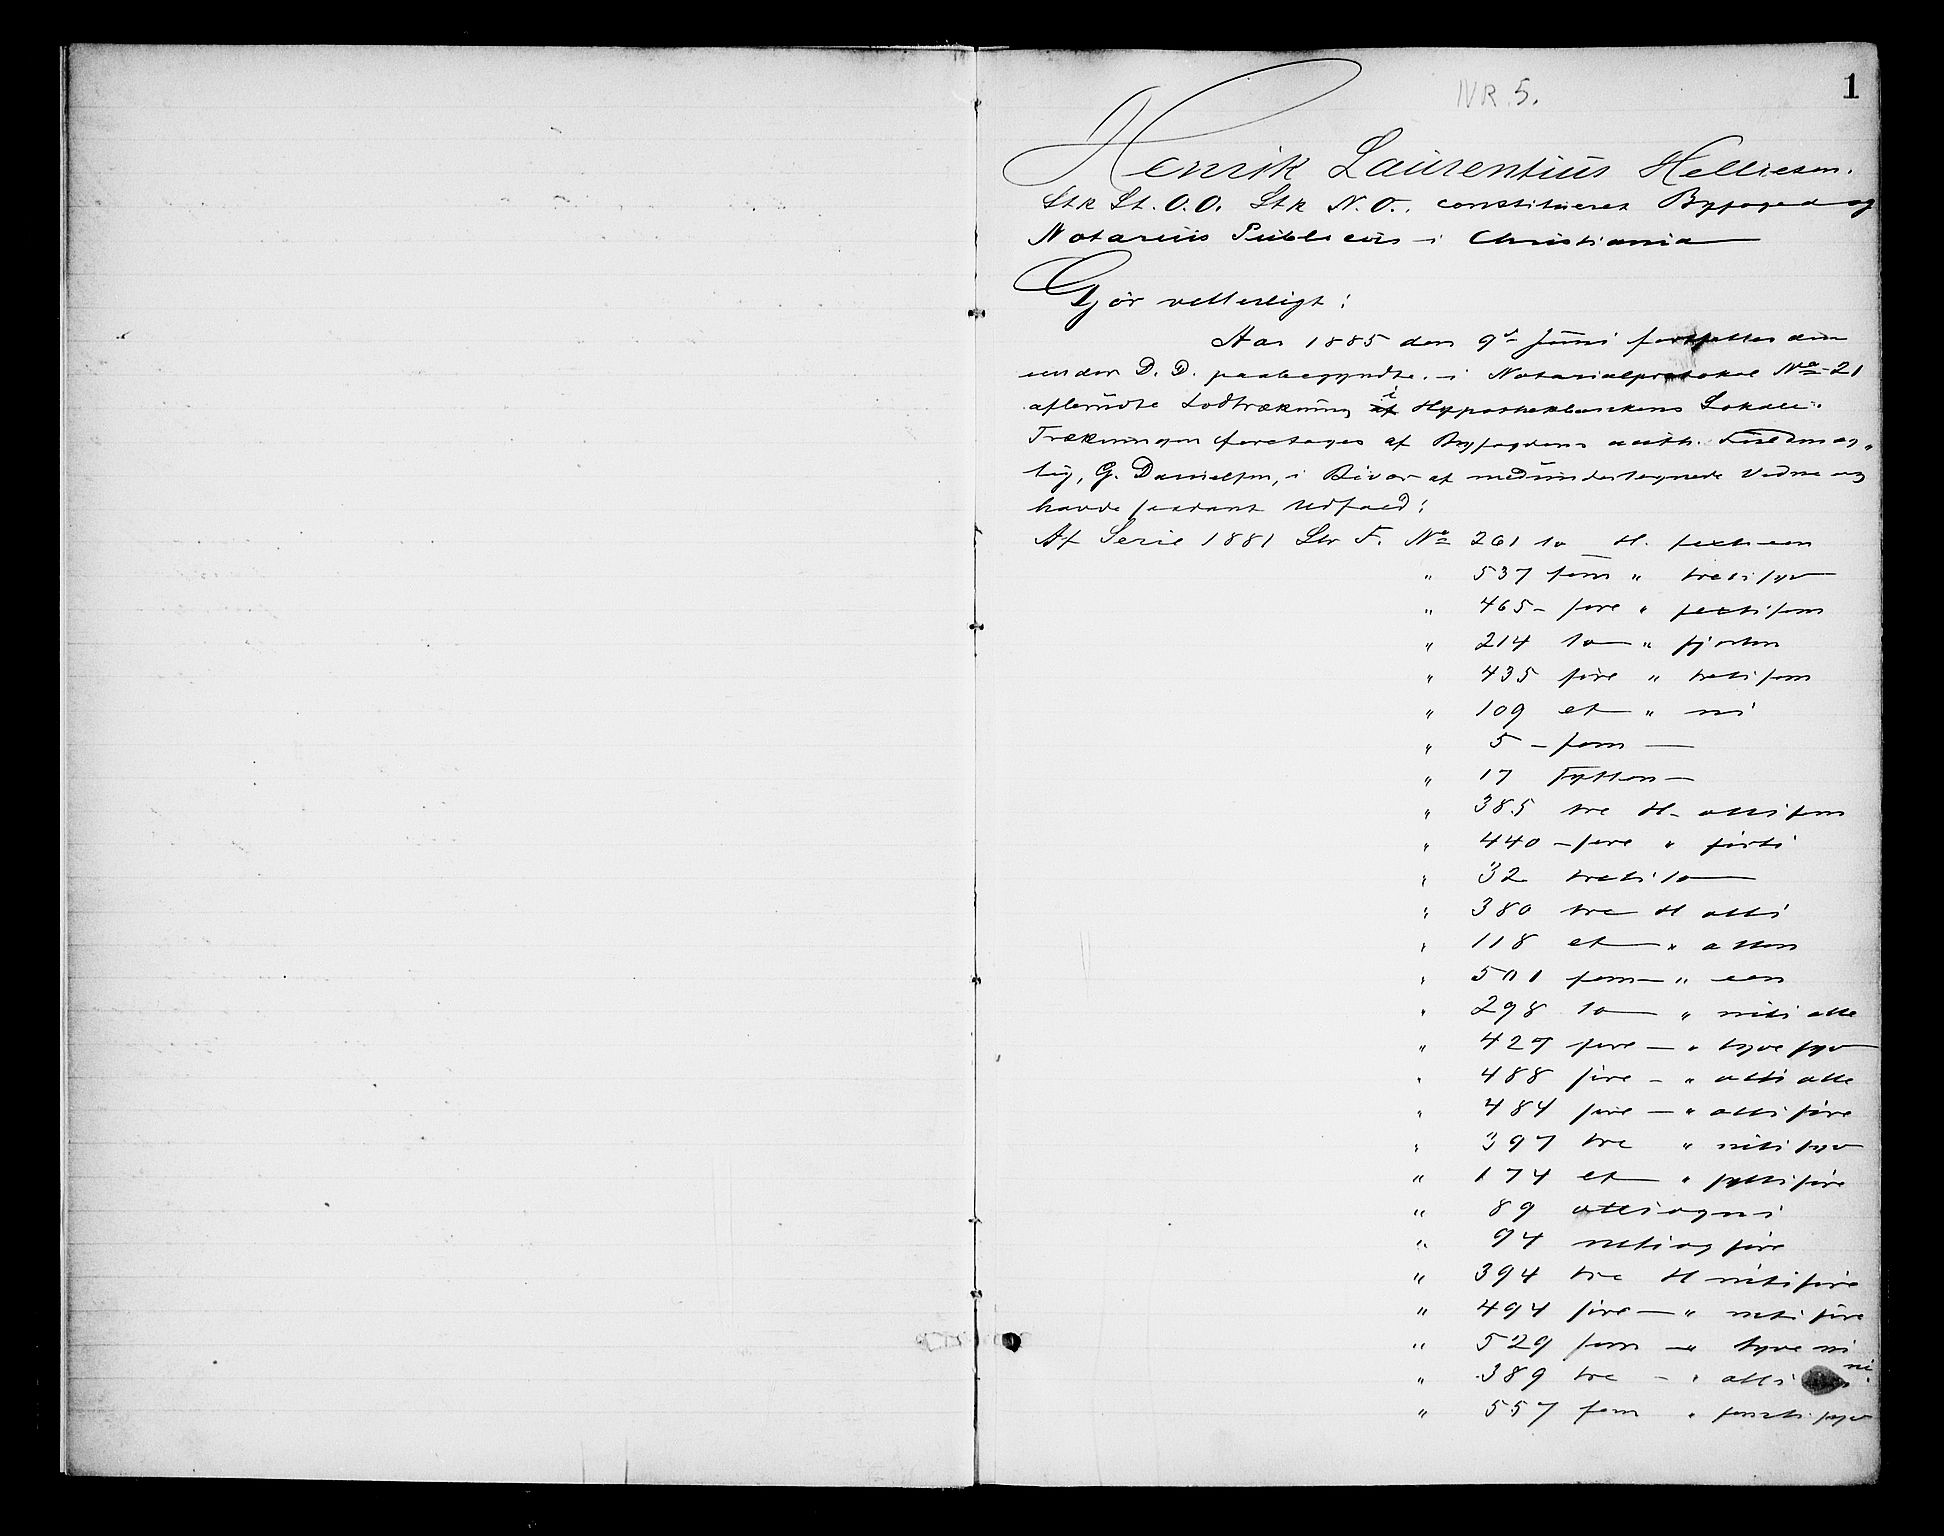 NR. 5.
1
Henrik Laurentius Helliesen.
Stk St. O. O. Stk N. O. constitueret Byfoged og
Notarius Publicus i Christiania
Gjør vitterligt:
Aar 1885 den 9de Juni fortsattes den
under D. D. paabegyndte i Notarialprotokol No 21
afbrudte Lodtrækning i Hypothekbankens Lokale.
Trækningen foretoges af Byfogdens auth. Fuldmæg-
tig, G. Danielsen, i Bivær af medundertegnede Vidne og
havde saadant Udfald:
Af Serie 1881 Litr F. No 261 to H. sextien
" 537 fem " tretisyv
" 465 – fire " sextifem
" 214 to " fjorten
" 435 fire " tretifem
" 109 et " ni
" 5 – fem –
" 17 Sytten –
" 385 tre H. ottifem
" 440 – fire " førti
" 32 tretito
" 380 tre H otti
" 118 et " atten
" 501 fem – " een
" 298 to " nitiotte
" 427 fire – " tyvesyv
" 488 fire – " ottiotte
" 484 fire – " ottifire
" 397 tre " nitisyv
" 174 et " syttifire
" 89 ottiogni
" 94 nitiogfire
" 394 tre H nitifire
" 494 fire – " nitifire
" 529 fem – " tyveni
" 389 tre – " otti ni
" 557 fem " femtisyv